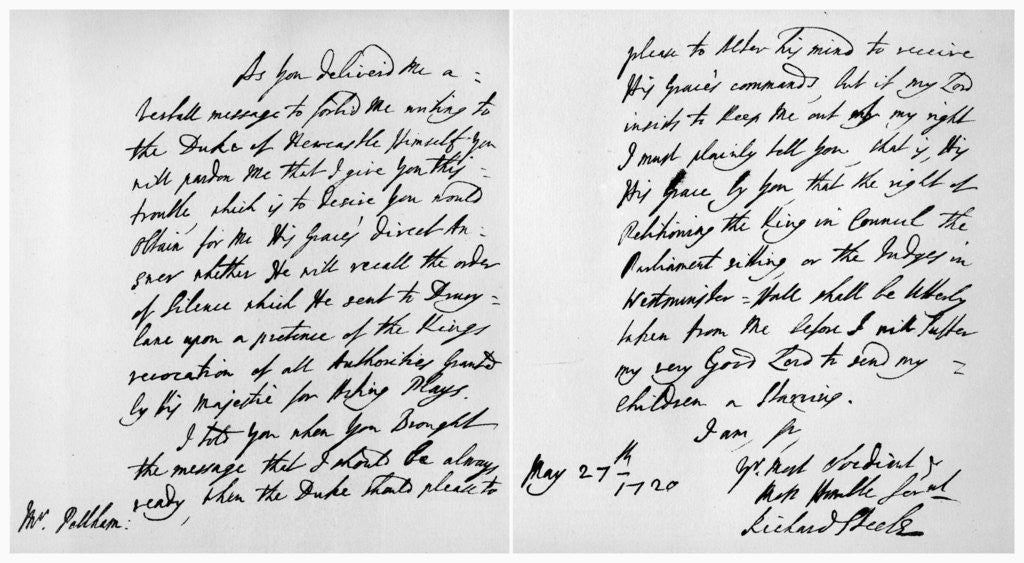 As you deliver'd Me a =
Verball message to forbid Me writing to
the Duke of Newcastle Himself You
will pardon Me that I give You this =
trouble, which is to Desire You would
Obtain for Me His Grace's direct An =
swer whether He will recall the order
of Silence which He sent to Drury =
lane upon a pretence of the Kings
revocation of all Authorities Granted
by His Majestie for Acting Plays.
I told You when You Brought
the message that I should be always
ready, when the Duke should please to
Mr. Pellham:
please to Alter His mind to receive
His Grace's commands, but if my Lord
insists to Keep Me out my right
I must plainly tell You, that is, His
His Grace by You, that the right of
Petitioning the King in Council the
Parliament sitting, or the Judges in
Westminster = Hall shall be Utterly
taken from Me before I will Suffer
my very Good Lord to send my =
Children a Starving.
I am, Sr,
May 27th 1720
Yr. Most Obedient &
Most Humble Servnt
Richard Steele